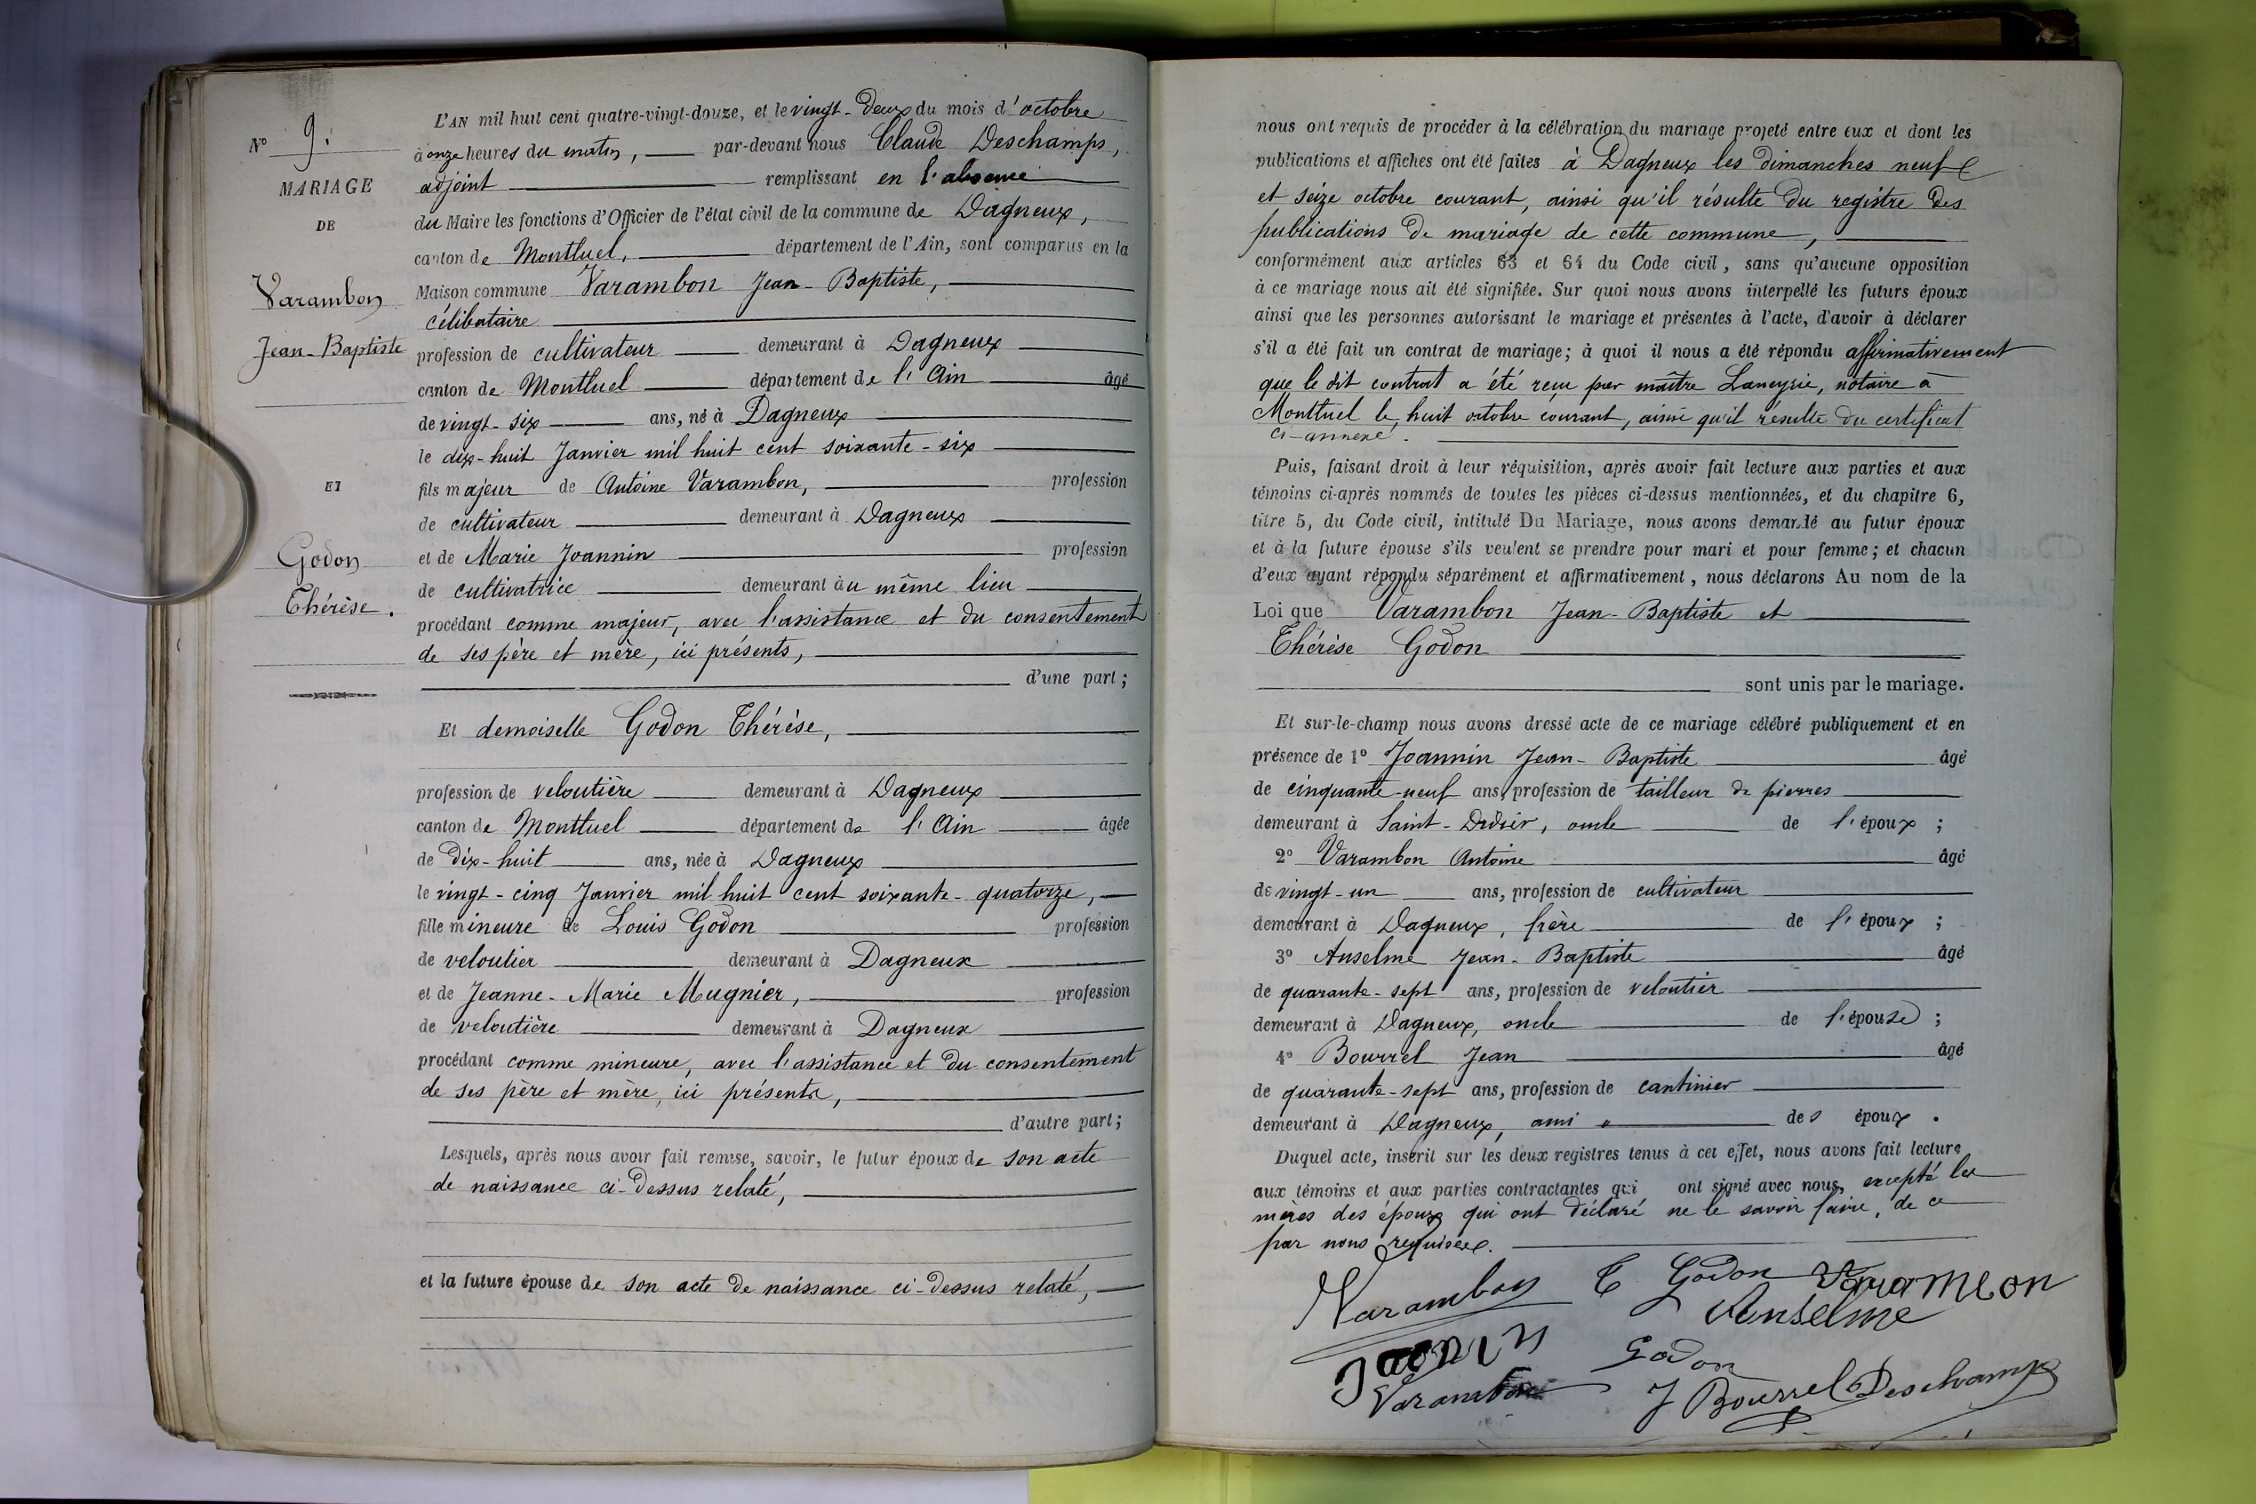 N° 9.
MARIAGE
DE
Varambon
Jean-Baptiste
ET
Godon
Thérèse.
L'AN mil huit cent quatre-vingt-douze, et le vingt-deux du mois d'octobre
à onze heures du matin, par-devant nous Claude Deschamps,
adjoint remplissant en l'absence
du Maire les fonctions d'Officier de l'état civil de la commune de Dagneux,
canton de Montluel, département de l'Ain, sont comparus en la
Maison commune Varambon Jean-Baptiste,
célibataire
profession de cultivateur demeurant à Dagneux
canton de Montluel département de l'Ain âgé
de vingt-six ans, né à Dagneux
le dix-huit Janvier mil huit cent soixante-six
fils majeur de Antoine Varambon, profession
de cultivateur demeurant à Dagneux
et de Marie Joannin profession
de cultivatrice demeurant au même lieu
procédant comme majeur, avec l'assistance et du consentement
de ses père et mère, ici présents,
d'une part;
Et demoiselle Godon Thérèse,
profession de veloutière demeurant à Dagneux
canton de Montluel département de l'Ain âgée
de dix-huit ans, née à Dagneux
le vingt-cinq Janvier mil huit cent soixante-quatorze,
fille mineure de Louis Godon profession
de veloutier demeurant à Dagneux
et de Jeanne-Marie Mugnier, profession
de veloutière demeurant à Dagneux
procédant comme mineure, avec l'assistance et du consentement
de ses père et mère, ici présents,
d'autre part;
Lesquels, après nous avoir fait remise, savoir, le futur époux de son acte
de naissance ci-dessus relaté,
et la future épouse de son acte de naissance ci-dessus relaté,
nous ont requis de procéder à la célébration du mariage projeté entre eux et dont les
publications et affiches ont été faites à Dagneux les dimanches neuf
et seize octobre courant, ainsi qu'il résulte du registre des
publications de mariage de cette commune,
conformément aux articles 63 et 64 du Code civil, sans qu'aucune opposition
à ce mariage nous ait été signifiée. Sur quoi nous avons interpellé les futurs époux
ainsi que les personnes autorisant le mariage et présentes à l'acte, d'avoir à déclarer
s'il a été fait un contrat de mariage; à quoi il nous a été répondu affirmativement
que le dit contrat a été reçu par maître Laneyrie, notaire à
Montluel le huit octobre courant, ainsi qu'il résulte du certificat
ci-annexé.
Puis, faisant droit à leur réquisition, après avoir fait lecture aux parties et aux
témoins ci-après nommés de toutes les pièces ci-dessus mentionnées, et du chapitre 6,
titre 5, du Code civil, intitulé Du Mariage, nous avons demandé au futur époux
et à la future épouse s'ils veulent se prendre pour mari et pour femme; et chacun
d'eux ayant répondu séparément et affirmativement, nous déclarons Au nom de la
Loi que Varambon Jean-Baptiste et
Thérèse Godon
sont unis par le mariage.
Et sur-le-champ nous avons dressé acte de ce mariage célébré publiquement et en
présence de 1° Joannin Jean-Baptiste âgé
de cinquante-neuf ans, profession de tailleur de pierres
demeurant à Saint-Didier, oncle de l'époux;
2° Varambon Antoine âgé
de vingt-un ans, profession de cultivateur
demeurant à Dagneux, frère de l'époux;
3° Anselme Jean-Baptiste âgé
de quarante-sept ans, profession de veloutier
demeurant à Dagneux, oncle de l'épouse;
4° Bourrel Jean âgé
de quarante-sept ans, profession de cantinier
demeurant à Dagneux, ami des époux.
Duquel acte, inscrit sur les deux registres tenus à cet effet, nous avons fait lecture
aux témoins et aux parties contractantes qui ont signé avec nous, excepté les
mères des époux qui ont déclaré ne le savoir faire, de ce
par nous requises.
Varambon T Godon Varambon
Anselme
Joanin Godon
Varambon J Bourrel Deschamps